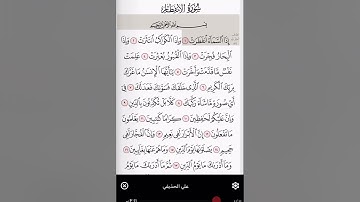 سُورَةُ الانفِطَارِ
بِسْمِ اللَّهِ الرَّحْمَٰنِ الرَّحِيمِ
إِذَا السَّمَاءُ انفَطَرَتْ ١ وَإِذَا الْكَوَاكِبُ انتَثَرَتْ ٢ وَإِذَا
الْبِحَارُ فُجِّرَتْ ٣ وَإِذَا الْقُبُورُ بُعْثِرَتْ ٤ عَلِمَتْ
نَفْسٌ مَّا قَدَّمَتْ وَأَخَّرَتْ ٥ يَا أَيُّهَا الْإِنسَانُ مَا غَرَّكَ
بِرَبِّكَ الْكَرِيمِ ٦ الَّذِي خَلَقَكَ فَسَوَّاكَ فَعَدَلَكَ ٧ فِي
أَيِّ صُورَةٍ مَّا شَاءَ رَكَّبَكَ ٨ كَلَّا بَلْ تُكَذِّبُونَ بِالدِّينِ ٩
وَإِنَّ عَلَيْكُمْ لَحَافِظِينَ ١٠ كِرَامًا كَاتِبِينَ ١١ يَعْلَمُونَ
مَا تَفْعَلُونَ ١٢ إِنَّ الْأَبْرَارَ لَفِي نَعِيمٍ ١٣ وَإِنَّ الْفُجَّارَ لَفِي
جَحِيمٍ ١٤ يَصْلَوْنَهَا يَوْمَ الدِّينِ ١٥ وَمَا هُمْ عَنْهَا بِغَائِبِينَ ١٦
وَمَا أَدْرَاكَ مَا يَوْمُ الدِّينِ ١٧ ثُمَّ مَا أَدْرَاكَ مَا يَوْمُ
علي الحذيفي